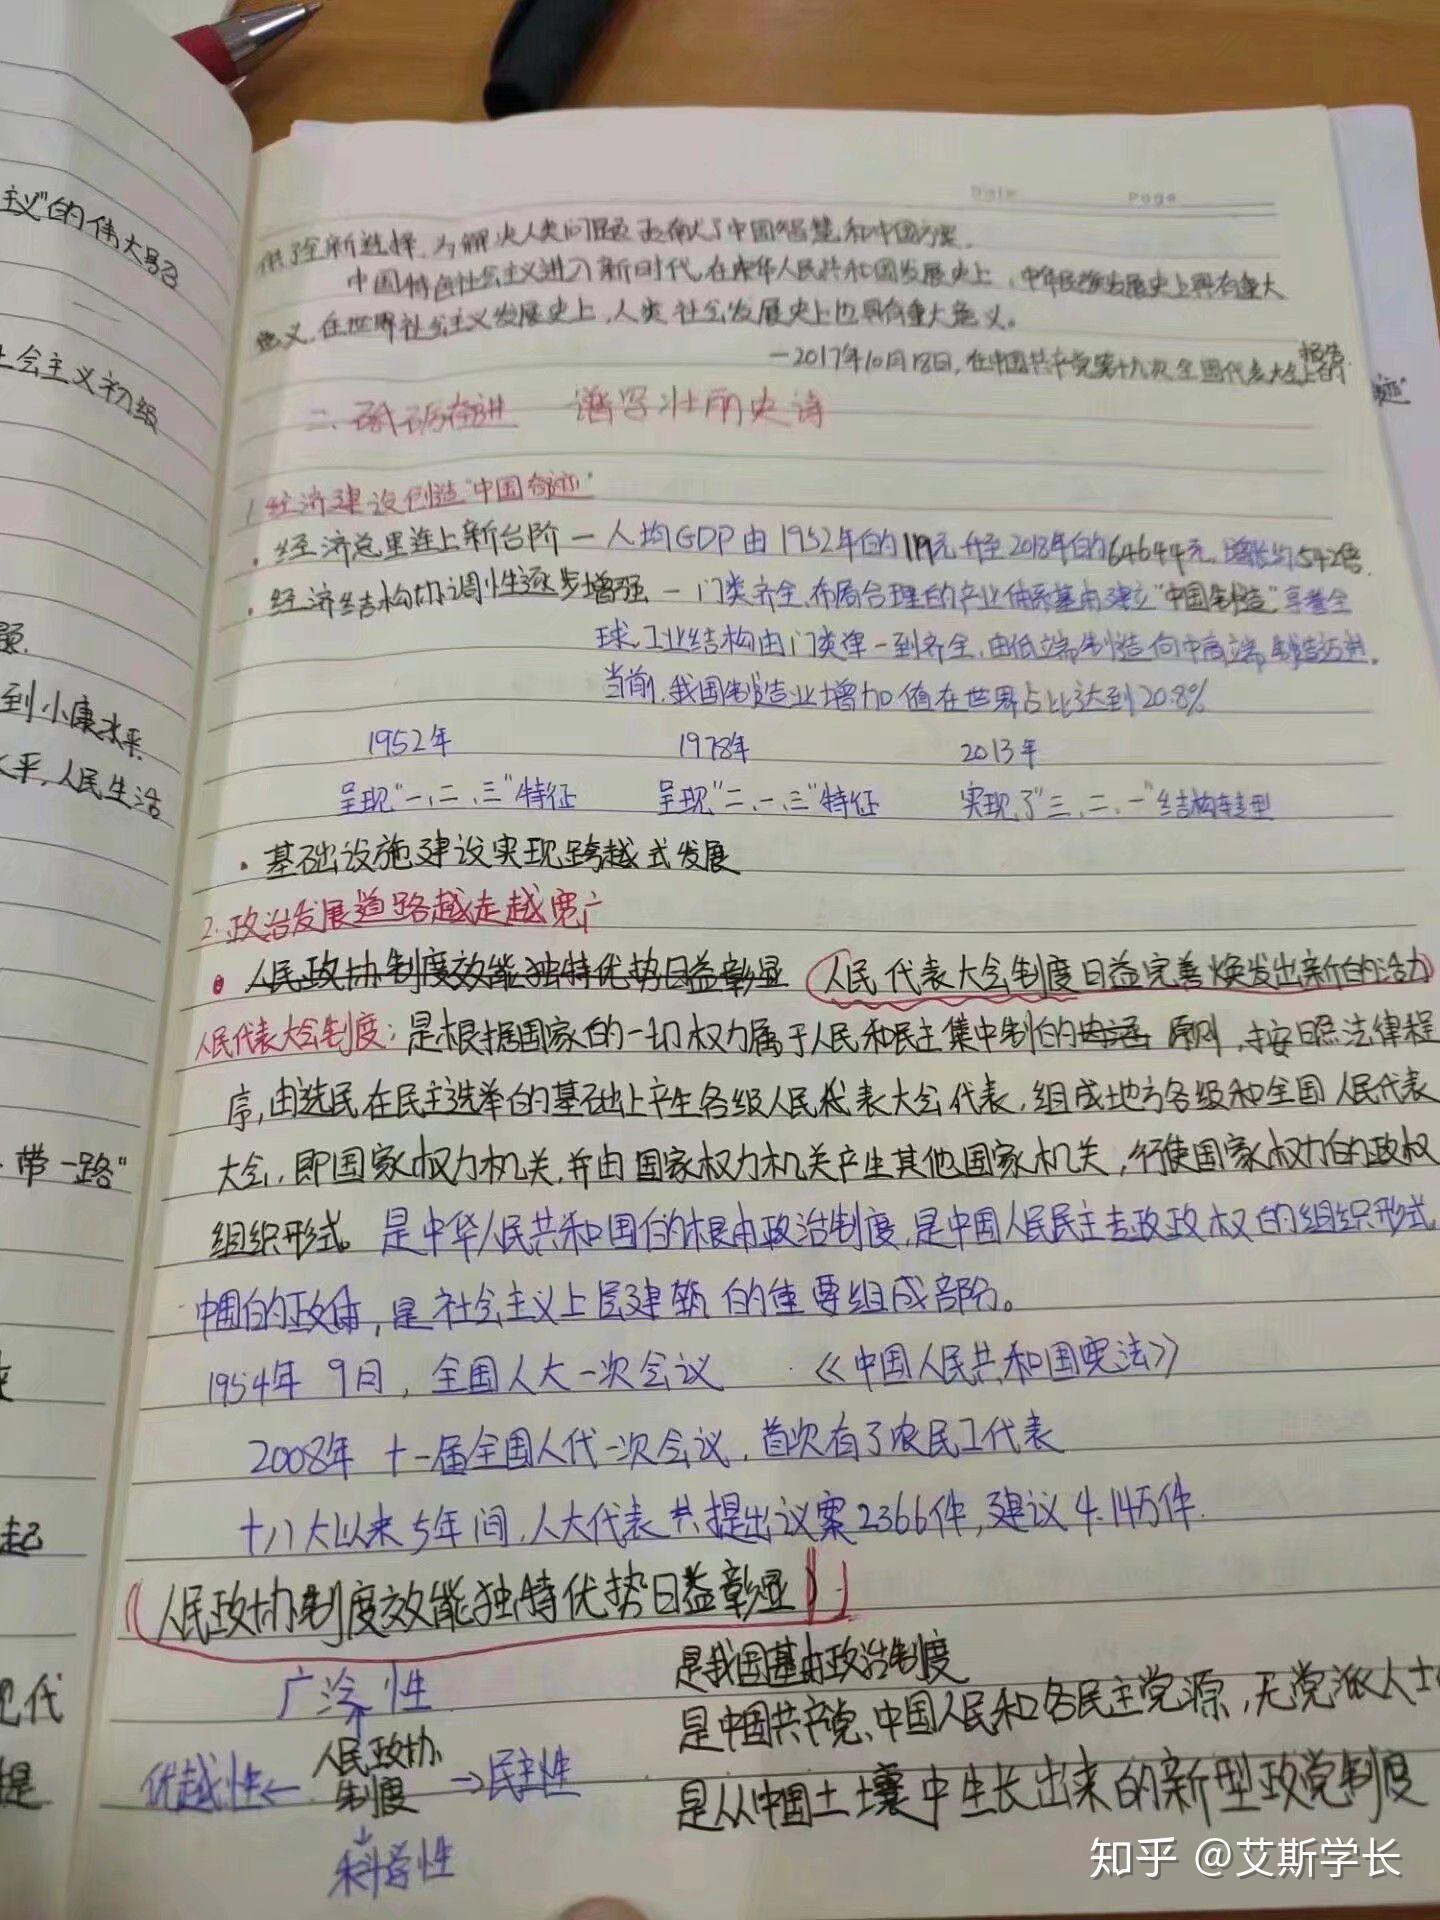 主义"的伟大号召
社会主义初级
题.
到小康水平
水平,人民生活
带一路"
起
现代
提
Date Page
供了全新选择,为解决人类问题贡献了中国智慧和中国方案.
中国特色社会主义进入新时代,在中华人民共和国发展史上,中华民族发展史上具有重大
意义,在世界社会主义发展史上,人类社会发展史上也具有重大意义。
—2017年10月18日,在中国共产党第十九次全国代表大会上的报告.
二、砥砺奋进 谱写壮丽史诗
1.经济建设创造"中国奇迹"
·经济总量连上新台阶 — 人均GDP由1952年的119元升至2018年的64644元,增长约542倍.
·经济结构协调性逐步增强 — 门类齐全、布局合理的产业体系基本建立"中国制造"享誉全
球,工业结构由门类单一到齐全,由低端制造向中高端制造迈进.
当前,我国制造业增加值在世界占比达到20.8%
1952年 1978年 2013年
呈现"一、二、三"特征 呈现"二、一、三"特征 实现了"三、二、一"结构转型
·基础设施建设实现跨越式发展
2.政治发展道路越走越宽广
·人民政协制度效能独特优势日益彰显 人民代表大会制度日益完善焕发出新的活力
人民代表大会制度:是根据国家的一切权力属于人民和民主集中制的 原则,按照法律程
序,由选民在民主选举的基础上产生各级人民代表大会代表,组成地方各级和全国人民代表
大会,即国家权力机关,并由国家权力机关产生其他国家机关,行使国家权力的政权
组织形式。是中华人民共和国的根本政治制度,是中国人民民主专政政权的组织形式,
中国的政体,是社会主义上层建筑的重要组成部分。
1954年9月,全国人大一次会议 《中国人民共和国宪法》
2008年 十一届全国人代一次会议,首次有了农民工代表
十八大以来5年间,人大代表共提出议案2366件,建议4.14万件.
人民政协制度效能独特优势日益彰显
广泛性 是我国基本政治制度
是中国共产党、中国人民和各民主党源,无党派人士
优越性← 人民政协制度 →民主性
是从中国土壤中生长出来的新型政党制度
科学性
知乎 @艾斯学长